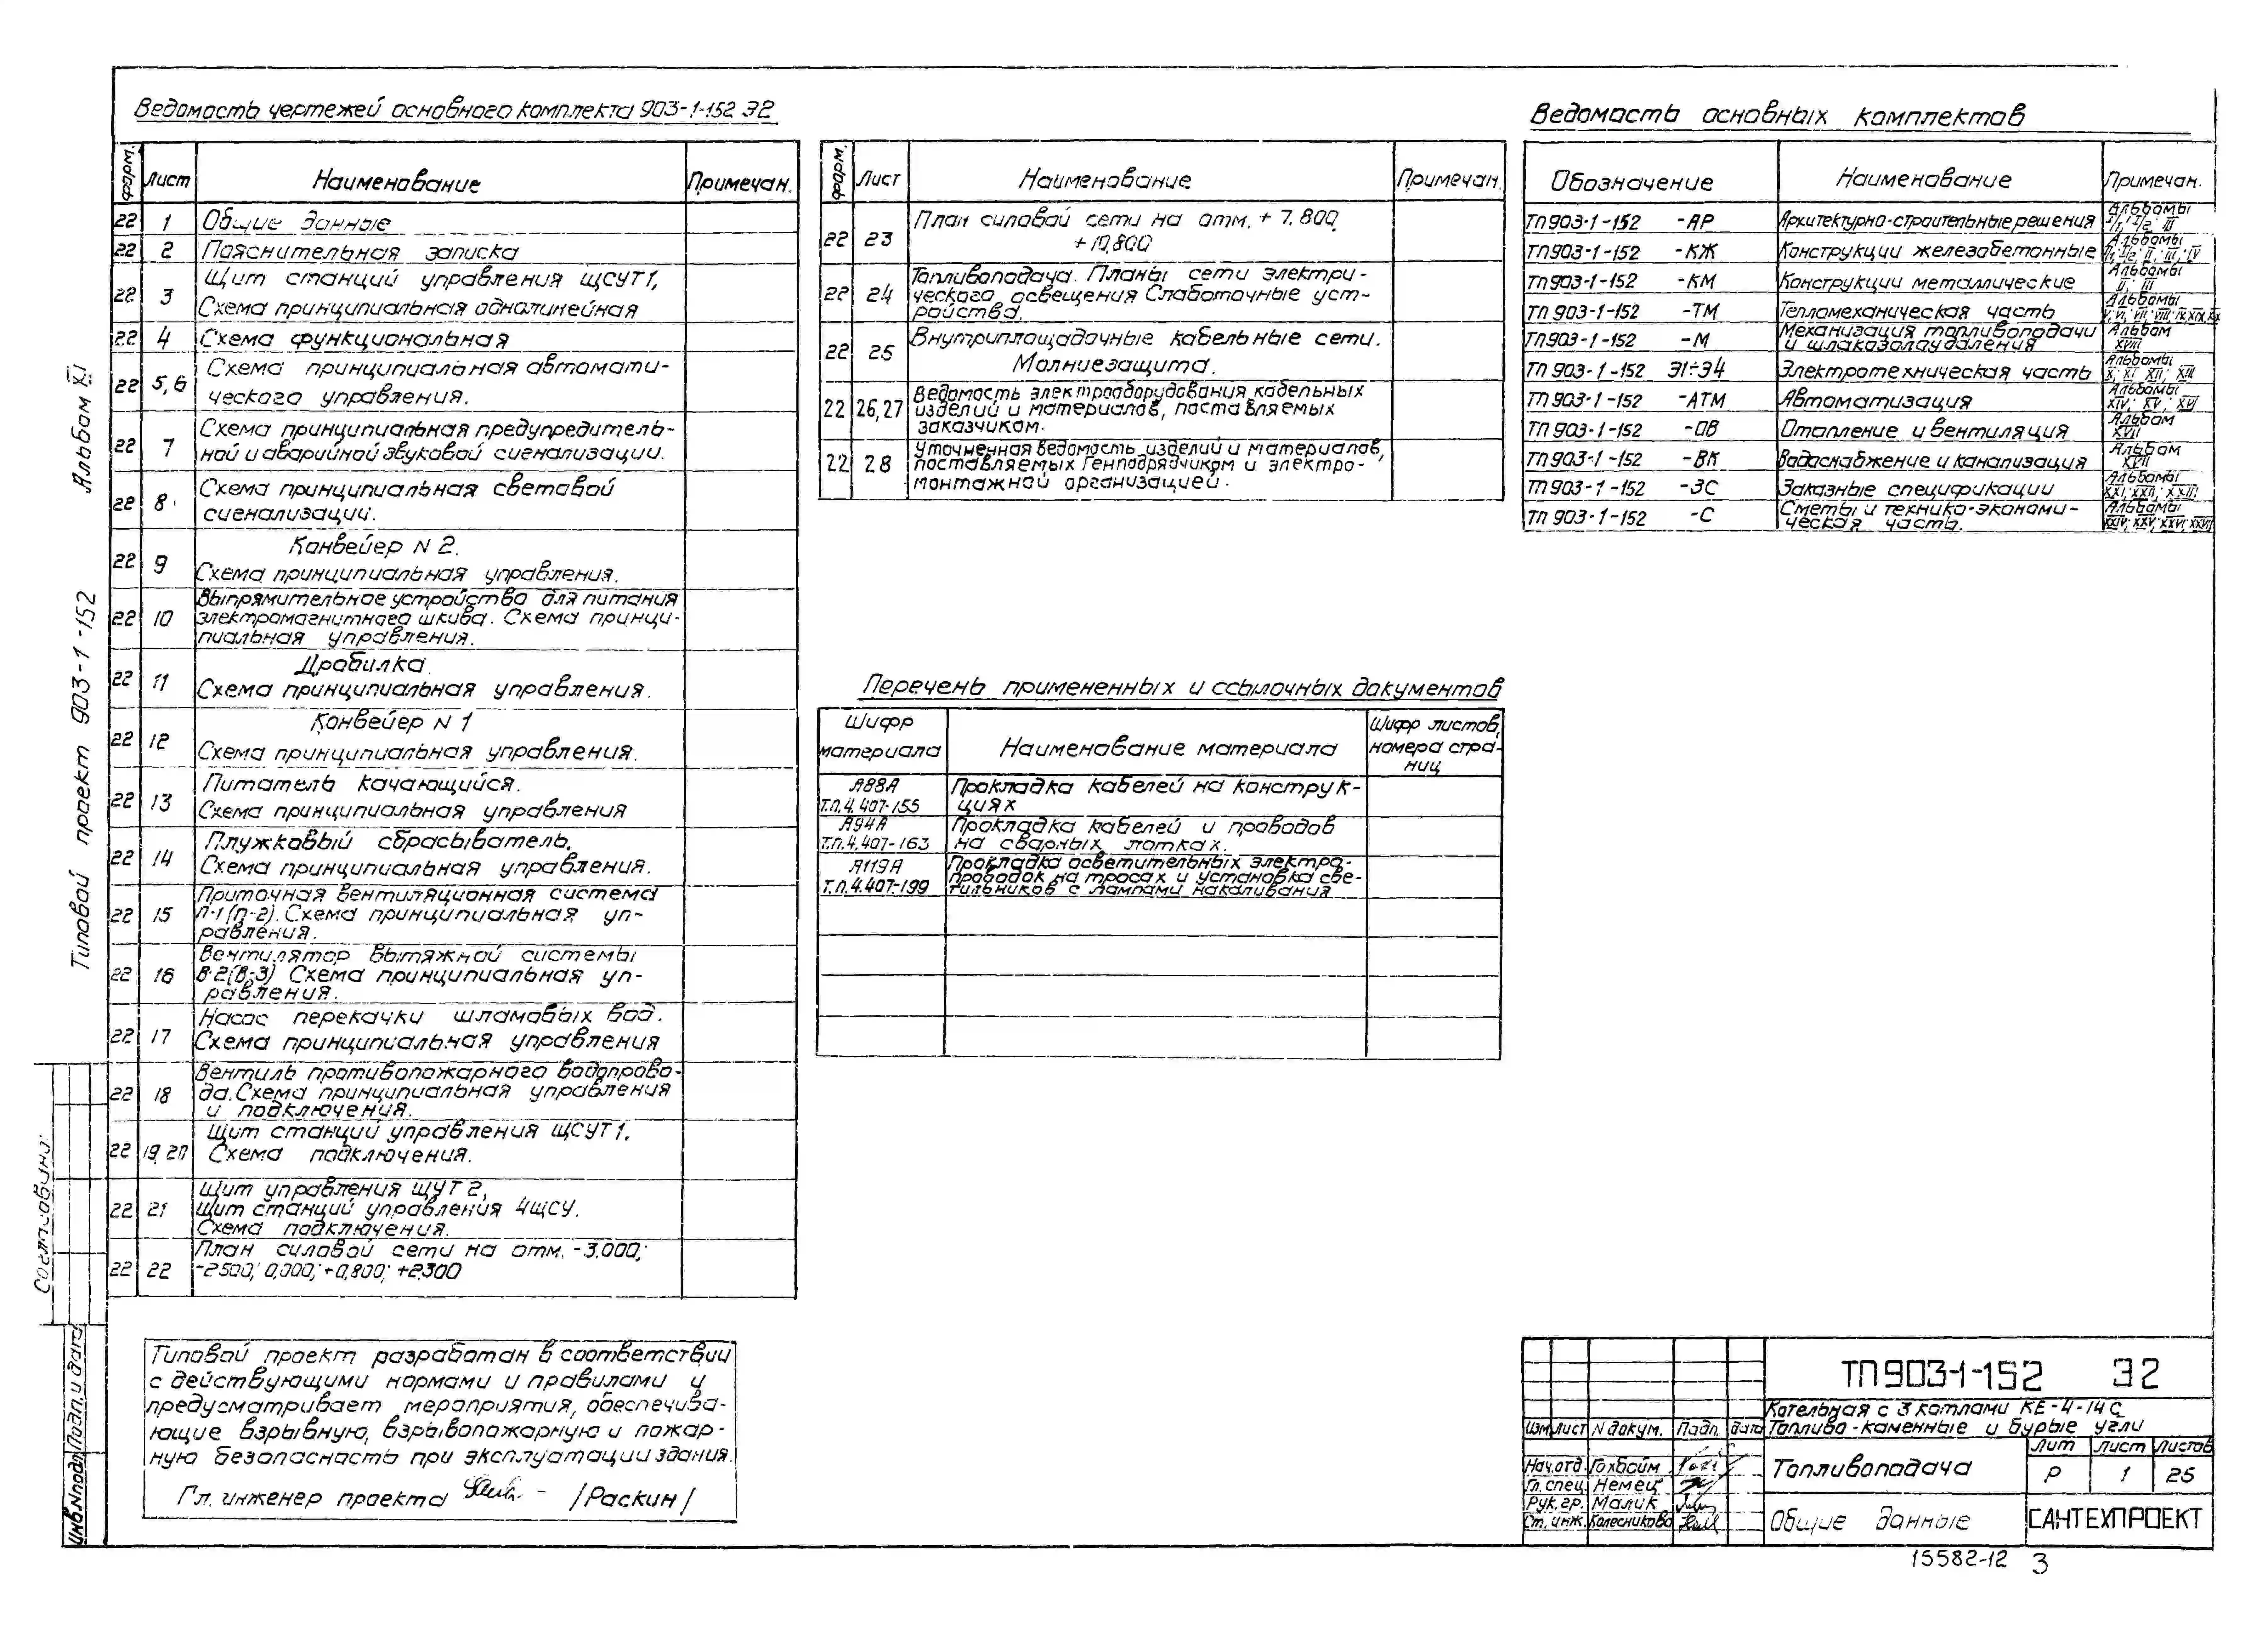 Ведомость чертежей основного комплекта 903-1-152 Э2
форм. Лист Наименование Примечан.
22 1 Общие данные
22 2 Пояснительная записка
22 3 Щит станций управления ЩСУТ1,
Схема принципиальная однолинейная
22 4 Схема функциональная
22 5,6 Схема принципиальная автомати-
ческого управления.
22 7 Схема принципиальная предупредитель-
ной и аварийной звуковой сигнализации.
22 8 Схема принципиальная световой
сигнализации.
22 9 Конвейер N 2.
Схема принципиальная управления.
22 10 Выпрямительное устройство для питания
электромагнитного шкива. Схема принци-
пиальная управления.
22 11 Дробилка.
Схема принципиальная управления.
22 12 Конвейер N 1
Схема принципиальная управления.
22 13 Питатель качающийся.
Схема принципиальная управления
22 14 Плужковый сбрасыватель.
Схема принципиальная управления.
22 15 Приточная вентиляционная система
П-1(П-2). Схема принципиальная уп-
равления.
22 16 Вентилятор вытяжной системы
В-2(В-3) Схема принципиальная уп-
равления.
22 17 Насос перекачки шламовых вод.
Схема принципиальная управления
22 18 Вентиль противопожарного водопрово-
да. Схема принципиальная управления
и подключения.
22 19,20 Щит станций управления ЩСУТ1.
Схема подключения.
22 21 Щит управления ЩУТ2,
Щит станций управления 4ЩСУ.
Схема подключения.
22 22 План силовой сети на отм. -3.000;
-2500; 0,000; +0,800; +2.300
форм. Лист Наименование Примечан.
22 23 План силовой сети на отм. + 7.800,
+10,800
22 24 Топливоподача. Планы сети электри-
ческого освещения Слаботочные уст-
ройства.
22 25 Внутриплощадочные кабельные сети.
Молниезащита.
22 26,27 Ведомость электрооборудования, кабельных
изделий и материалов, поставляемых
заказчиком.
22 28 Уточненная ведомость изделий и материалов,
поставляемых Генподрядчиком и электро-
монтажной организацией.
Перечень примененных и ссылочных документов
Шифр материала Наименование материала Шифр листов, номера стра-
ниц
А88А Прокладка кабелей на конструк-
Т.П.4.407-155 циях
А94А Прокладка кабелей и проводов
Т.П.4.407-163 на сварных лотках.
А119А Прокладка осветительных электро-
проводок на тросах и установка све-
Т.П.4.407-199 тильников с лампами накаливания
Ведомость основных комплектов
Обозначение Наименование Примечан.
ТП903-1-152 -АР Архитектурно-строительные решения Альбомы
ТП903-1-152 -КЖ Конструкции железобетонные Альбомы
ТП903-1-152 -КМ Конструкции металлические Альбомы II; III
ТП 903-1-152 -ТМ Тепломеханическая часть Альбомы
ТП903-1-152 -М Механизация топливоподачи
и шлакозолоудаления Альбом XVIII
ТП 903-1-152 Э1÷Э4 Электротехническая часть Альбомы X; XI; XII; XIII
ТП 903-1-152 -АТМ Автоматизация Альбомы XIV; XV; XVI
ТП 903-1-152 -ОВ Отопление и вентиляция Альбом XVII
ТП 903-1-152 -ВК Водоснабжение и канализация Альбом XVII
ТП 903-1-152 -ЗС Заказные спецификации Альбомы XXI; XXII; XXIII
ТП 903-1-152 -С Сметы и технико-экономи-
ческая часть. Альбомы XXIV; XXV; XXVI; XXVII
Типовой проект 903-1-152 Альбом XI
Согласовано:
Инв.Nподл. Подп. и дата
Типовой проект разработан в соответствии
с действующими нормами и правилами и
предусматривает мероприятия, обеспечива-
ющие взрывную, взрывопожарную и пожар-
ную безопасность при эксплуатации здания.
Гл. инженер проекта /Раскин/
ТП903-1-152 Э2
Котельная с 3 котлами КЕ-4-14С
Топливо - каменные и бурые угли
Изм Лист N докум. Подп. дата
Нач.отд. Гохбойм
Гл. спец. Немец
Рук. гр. Малик
Ст. инж. Колесникова
Топливоподача
Лит Лист Листов
Р 1 25
Общие данные
САНТЕХПРОЕКТ
15582-12 3